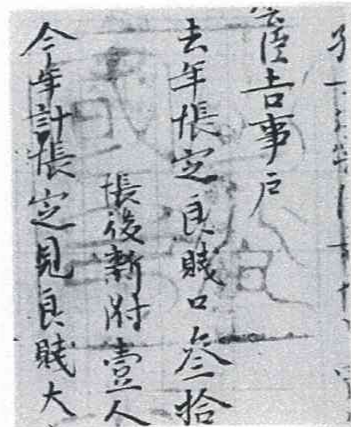 雲臣吉事戸
去年帳定良賤口参拾
帳後新附壹人
今年計帳定見良賤大